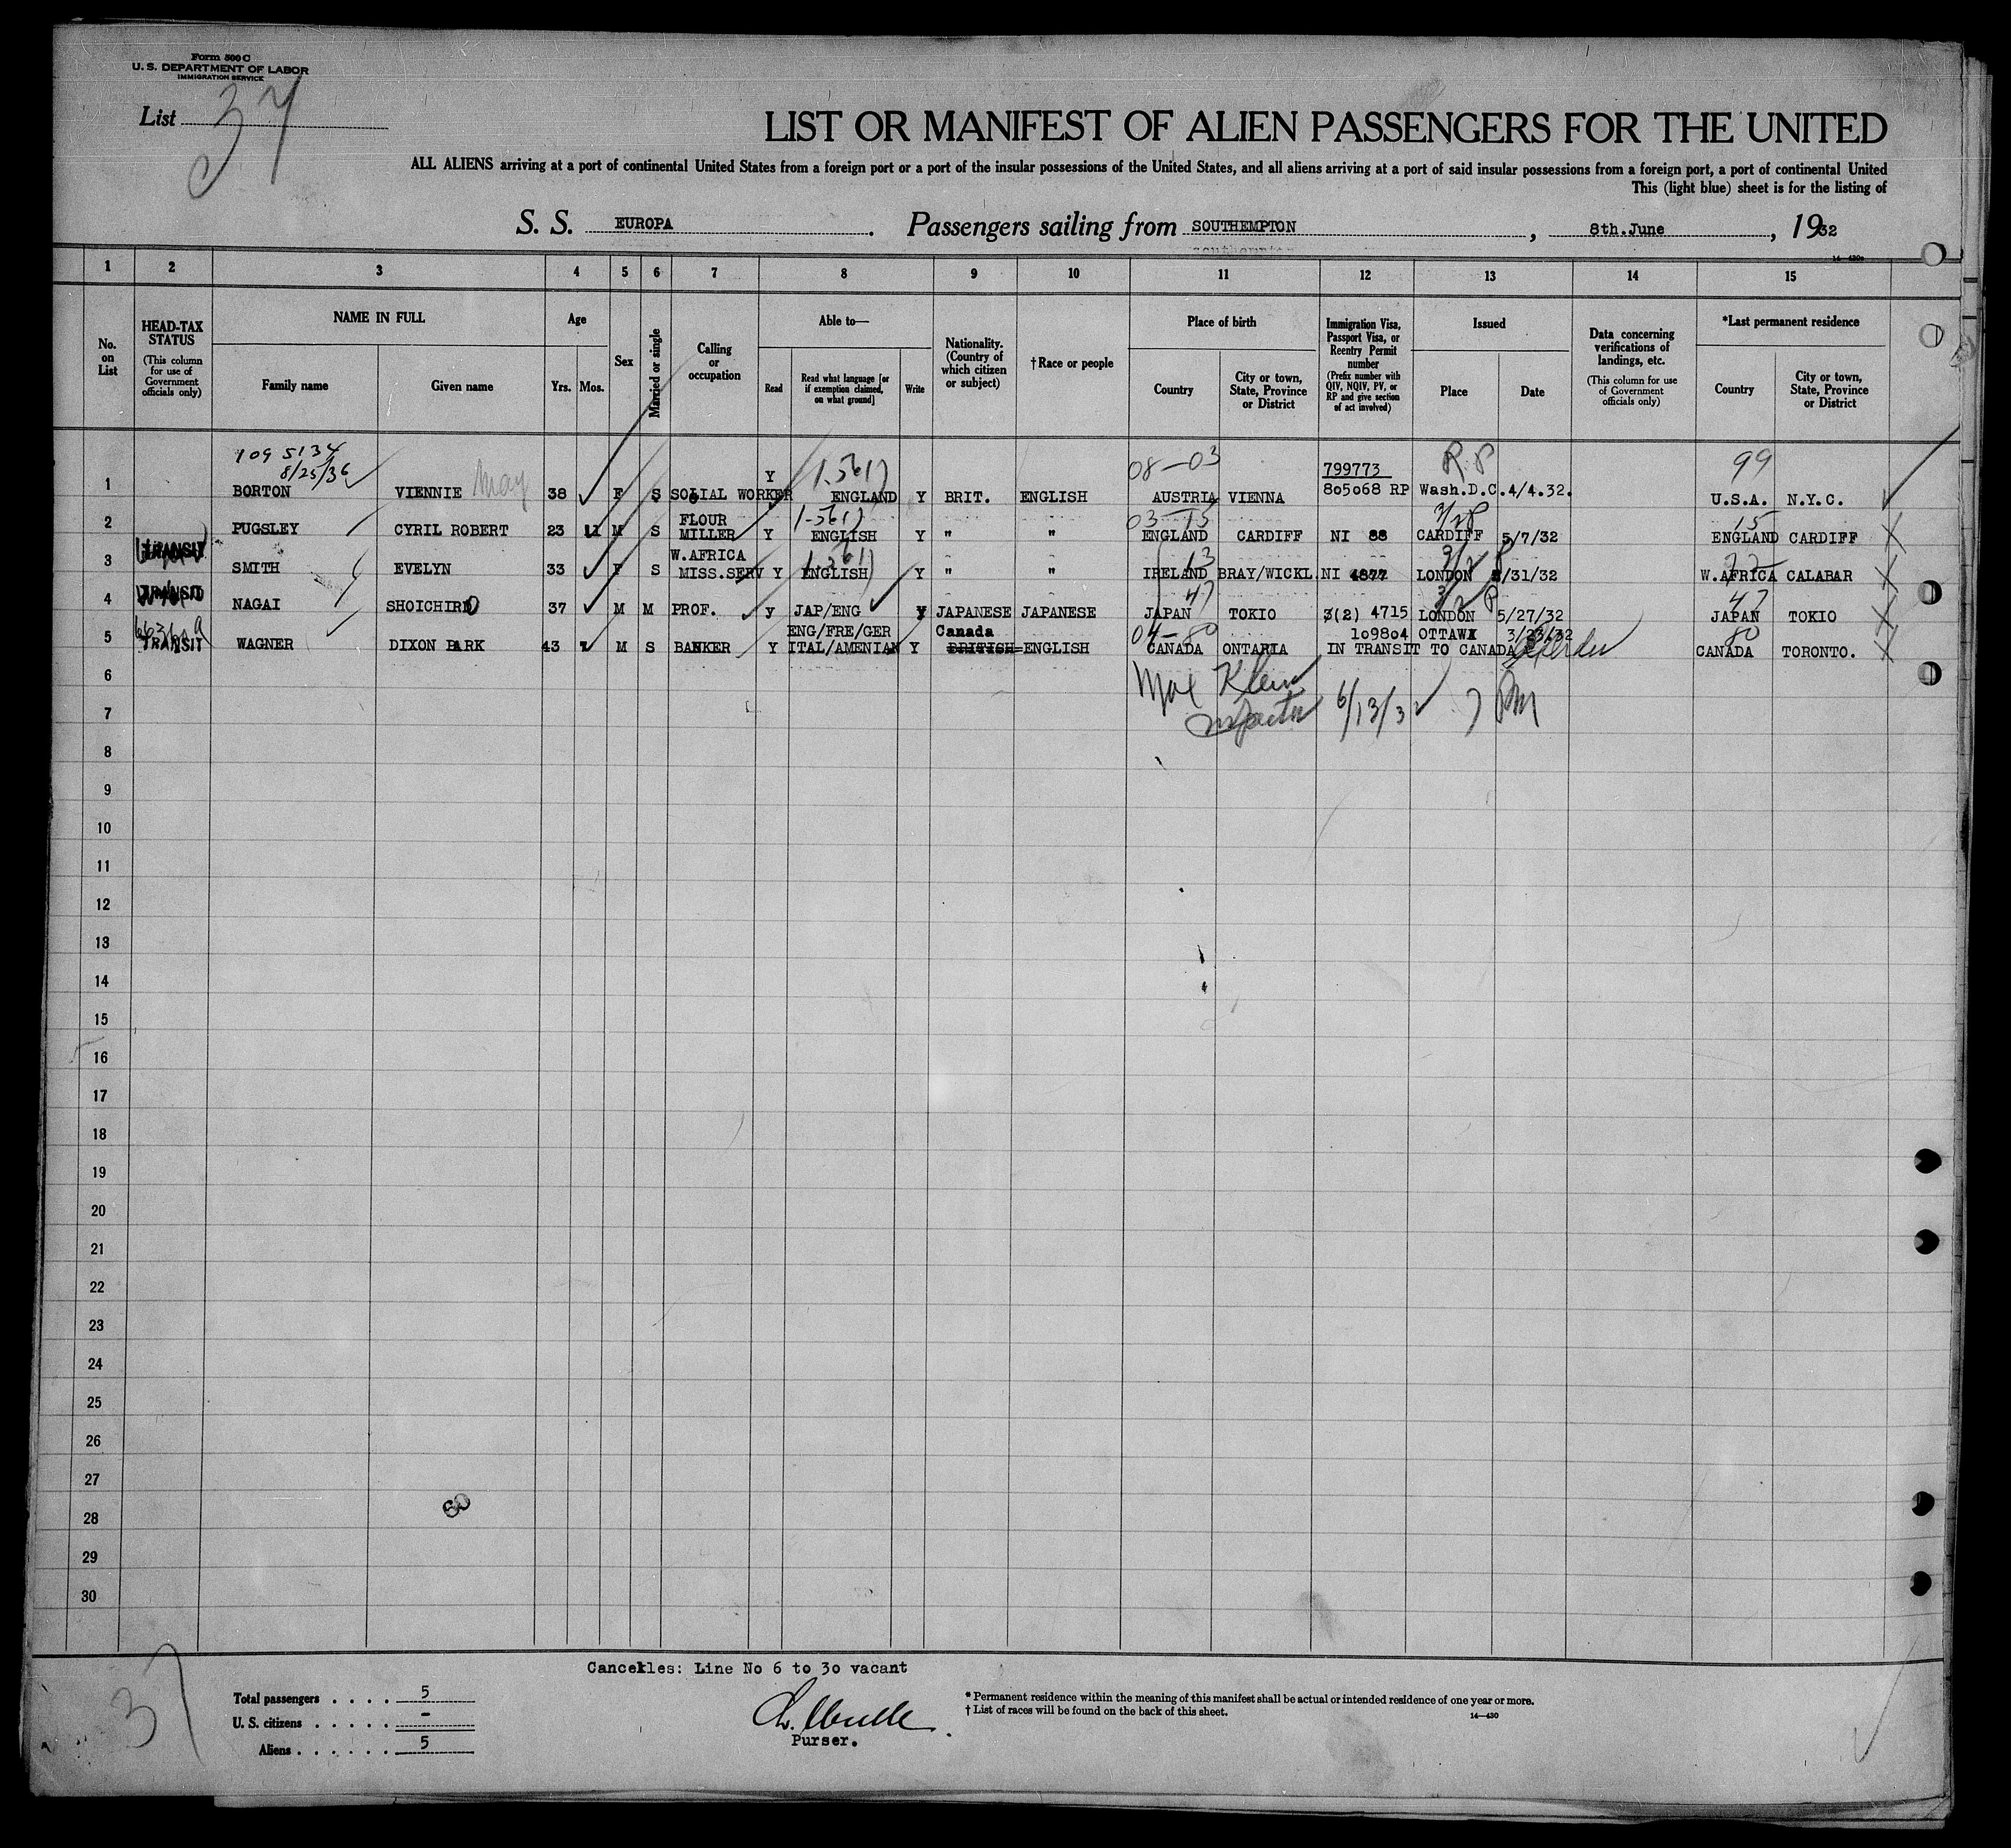 Form 500 C
U. S. DEPARTMENT OF LABOR
IMMIGRATION SERVICE
List 37
LIST OR MANIFEST OF ALIEN PASSENGERS FOR THE UNITED
ALL ALIENS arriving at a port of continental United States from a foreign port or a port of the insular possessions of the United States, and all aliens arriving at a port of said insular possessions from a foreign port, a port of continental United
This (light blue) sheet is for the listing of
S. S. EUROPA. Passengers sailing from SOUTHEMPTON, 8th.June, 1932
14-430a
1 2 3 4 5 6 7 8 9 10 11 12 13 14 15
No. on List
HEAD-TAX STATUS (This column for use of Government officials only)
NAME IN FULL
Family name
Given name
Age
Yrs.
Mos.
Sex
Married or single
Calling or occupation
Able to—
Read
Read what language [or if exemption claimed, on what ground]
Write
Nationality. (Country of which citizen or subject)
† Race or people
Place of birth
Country
City or town, State, Province or District
Immigration Visa, Passport Visa, or Reentry Permit number (Prefix number with QIV, NQIV, PV, or RP and give section of act involved)
Issued
Place
Date
Data concerning verifications of landings, etc. (This column for use of Government officials only)
*Last permanent residence
Country
City or town, State, Province or District
109 5134
8/25/36
08-03 799773 R.P 99
1 BORTON VIENNIE May 38 F S SOCIAL WORKER Y ENGLAND Y BRIT. ENGLISH AUSTRIA VIENNA 805068 RP Wash.D.C. 4/4.32. U.S.A. N.Y.C.
03-15 3/2P 15
2 PUGSLEY CYRIL ROBERT 23 11 M S FLOUR MILLER Y ENGLISH Y " " ENGLAND CARDIFF NI 88 CARDIFF 5/7/32 ENGLAND CARDIFF
TRANSIT
13
3 SMITH EVELYN 33 F S W.AFRICA MISS.SERV Y ENGLISH Y " " IRELAND BRAY/WICKL NI 4877 LONDON /31/32 W.AFRICA CALABAR
TRANSIT
47 47
4 NAGAI SHOICHIRO 37 M M PROF. y JAP/ENG Y JAPANESE JAPANESE JAPAN TOKIO 3(2) 4715 LONDON 5/27/32 JAPAN TOKIO
04-80 80
5 TRANSIT WAGNER DIXON PARK 43 M S BANKER Y ENG/FRE/GER ITAL/AMENIAN Y Canada BRITISH= ENGLISH CANADA ONTARIA 109804 OTTAWA 3/23/32 IN TRANSIT TO CANADA CANADA TORONTO.
6
Max Klein
Inspector 6/13/32 7 PM
7
8
9
10
11
12
13
14
15
16
17
18
19
20
21
22
23
24
25
26
27
28
29
30
Cancelles: Line No 6 to 30 vacant
37
Total passengers . . . . 5
U. S. citizens . . . . . -
Aliens . . . . . . 5
Purser.
* Permanent residence within the meaning of this manifest shall be actual or intended residence of one year or more.
† List of races will be found on the back of this sheet.
14-430